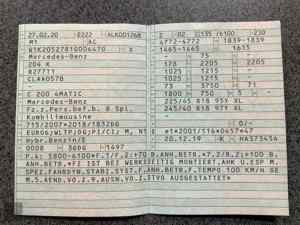 27.02.20 2222 ALK001268
M1 AC
W1K2052781G006470
Mercedes-Benz
204 K
R27711
CLAK0578
C 200 4MATIC
Mercedes-Benz
Fz.z.Pers.bef.b. 8 Spl.
Kombilimousine
715/2007*2018/1832DG
EURO6;WLTP;DG;PI/CI; M, N1
Hybr.Benzin/E
0008 1497
2 02 135 /6100 230
4772-4772 1839-1839
1465-1465 1615
75
178 2205 2205
1025 1215
1025 1215
73
1800 750 5
225/45 R18 95Y XL
245/40 R18 97Y XL
e1*2001/116*0457*47
20.12.19 K HA373454
P.4: 5800-6100*F.1/F.2:+70 B.ANH.BETR.*7.2/8.2:+100 B.
ANH.BETR.*FZ IST BEI WERKSEITIG MONTIERT.AHK U.ESP M.
SPEZ.FAHRDYN.STABI.SYST.F.ANH.BETR.F.TEMPO 100 KM/H GE
M.5.AEND.VO.Z.9.AUSN.VO.Z.STVO AUSGESTATTET*